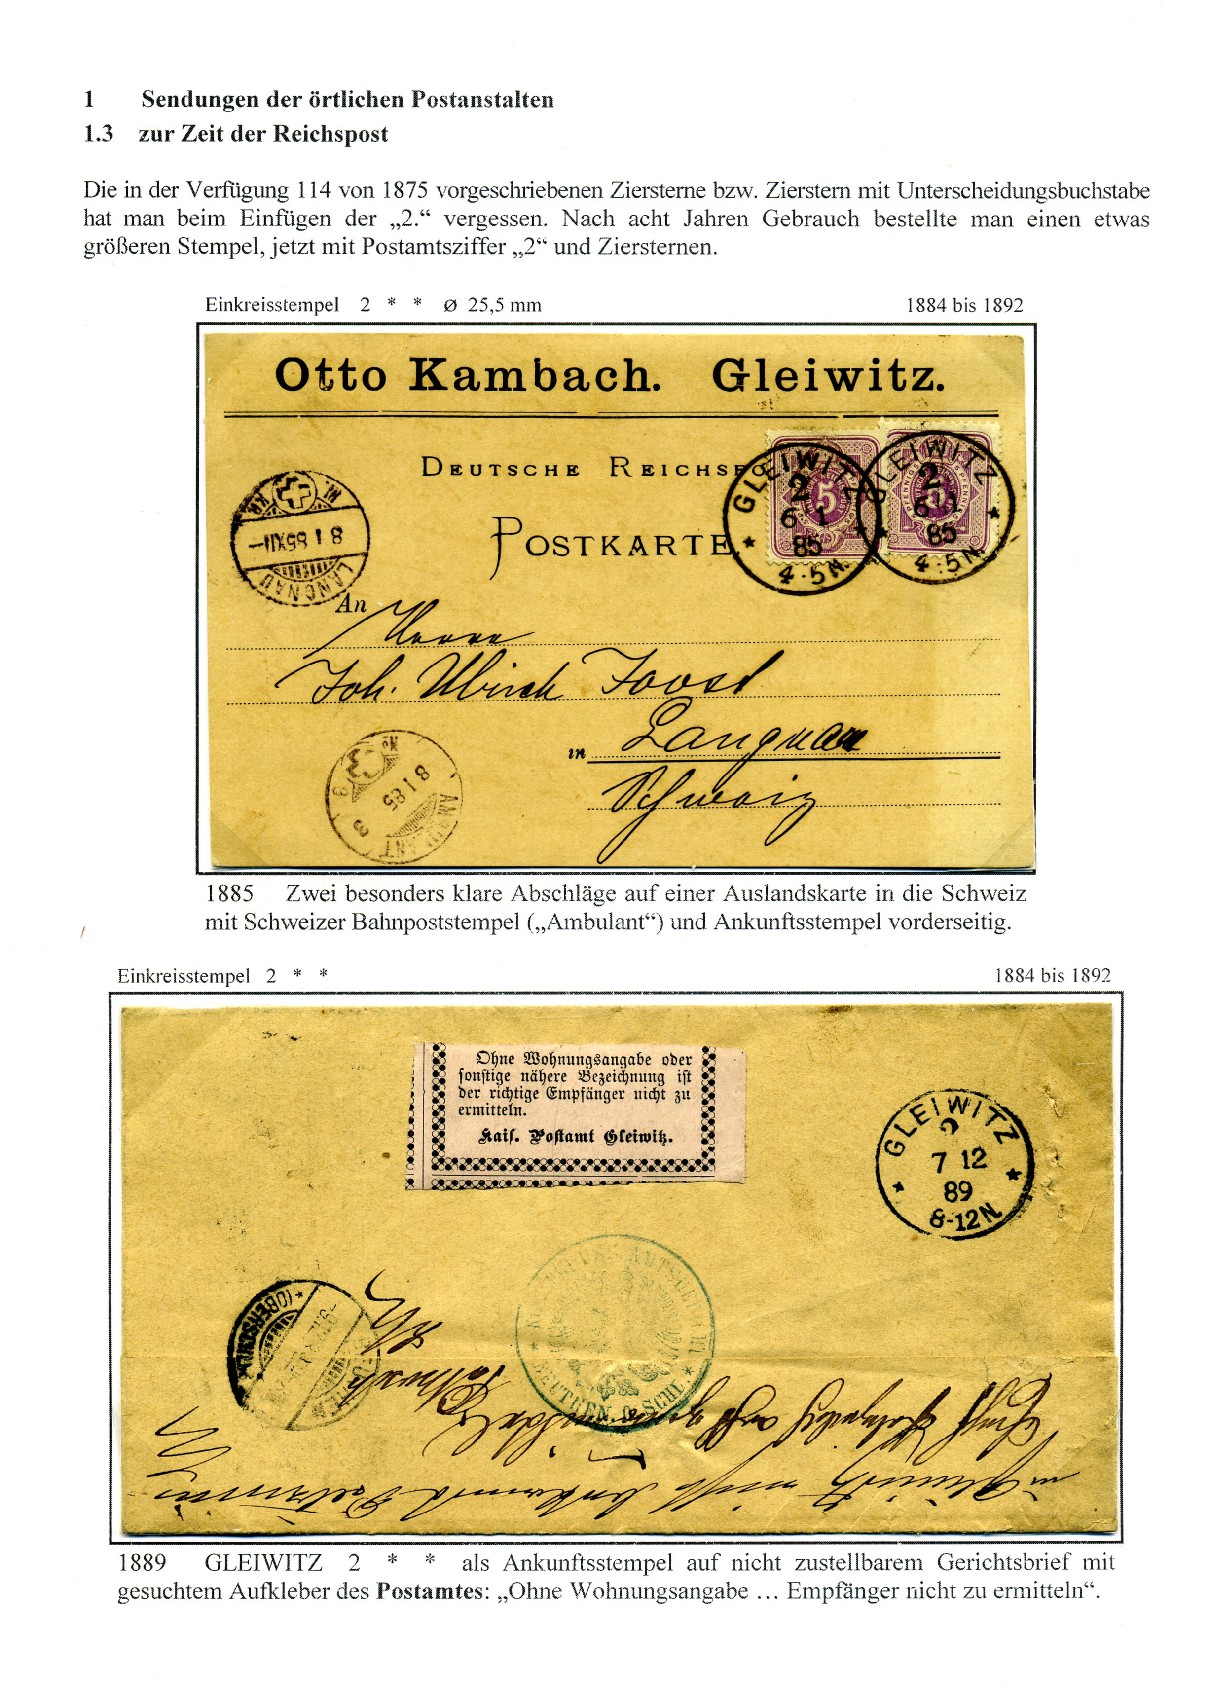 1 Sendungen der örtlichen Postanstalten
1.3 zur Zeit der Reichspost
Die in der Verfügung 114 von 1875 vorgeschriebenen Ziersterne bzw. Zierstern mit Unterscheidungsbuchstabe
hat man beim Einfügen der „2.“ vergessen. Nach acht Jahren Gebrauch bestellte man einen etwas
größeren Stempel, jetzt mit Postamtsziffer „2“ und Ziersternen.
Einkreisstempel 2 * * Ø 25,5 mm 1884 bis 1892
Otto Kambach. Gleiwitz.
DEUTSCHE
POSTKARTE.
GLEIWITZ
2
6 1
85
4-5N.
GLEIWITZ
2
85
4-5N.
8 1 85 XII
LANGNAU
An
Herrn
Joh. Ulrich Joost
in Langnau
Schweiz
8 1 85
AMBULANT
1885 Zwei besonders klare Abschläge auf einer Auslandskarte in die Schweiz
mit Schweizer Bahnpoststempel („Ambulant“) und Ankunftsstempel vorderseitig.
Einkreisstempel 2 * * 1884 bis 1892
Ohne Wohnungsangabe oder
sonstige nähere Bezeichnung ist
der richtige Empfänger nicht zu
ermitteln.
Kais. Postamt Gleiwitz.
GLEIWITZ
2
7 12
89
8-12N.
BEUTHEN
(OBERSCHL)
BEUTHEN. O. SCHL.
1889 GLEIWITZ 2 * * als Ankunftsstempel auf nicht zustellbarem Gerichtsbrief mit
gesuchtem Aufkleber des Postamtes: „Ohne Wohnungsangabe … Empfänger nicht zu ermitteln“.